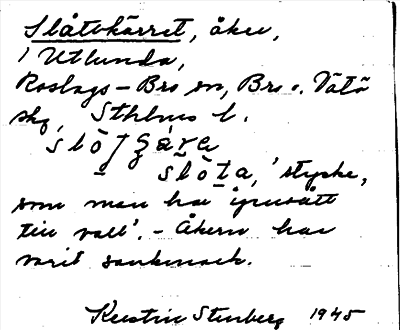 Slåtekärret, åker,
i Utlunda,
Roslags-Bro sn, Bro o. Vätö
skg, Sthlms l.
slōt
slōta, 'stycke,
som man har igensått
till vall'. - Åkern har
varit sankmark.
Kerstin Stenberg 1945